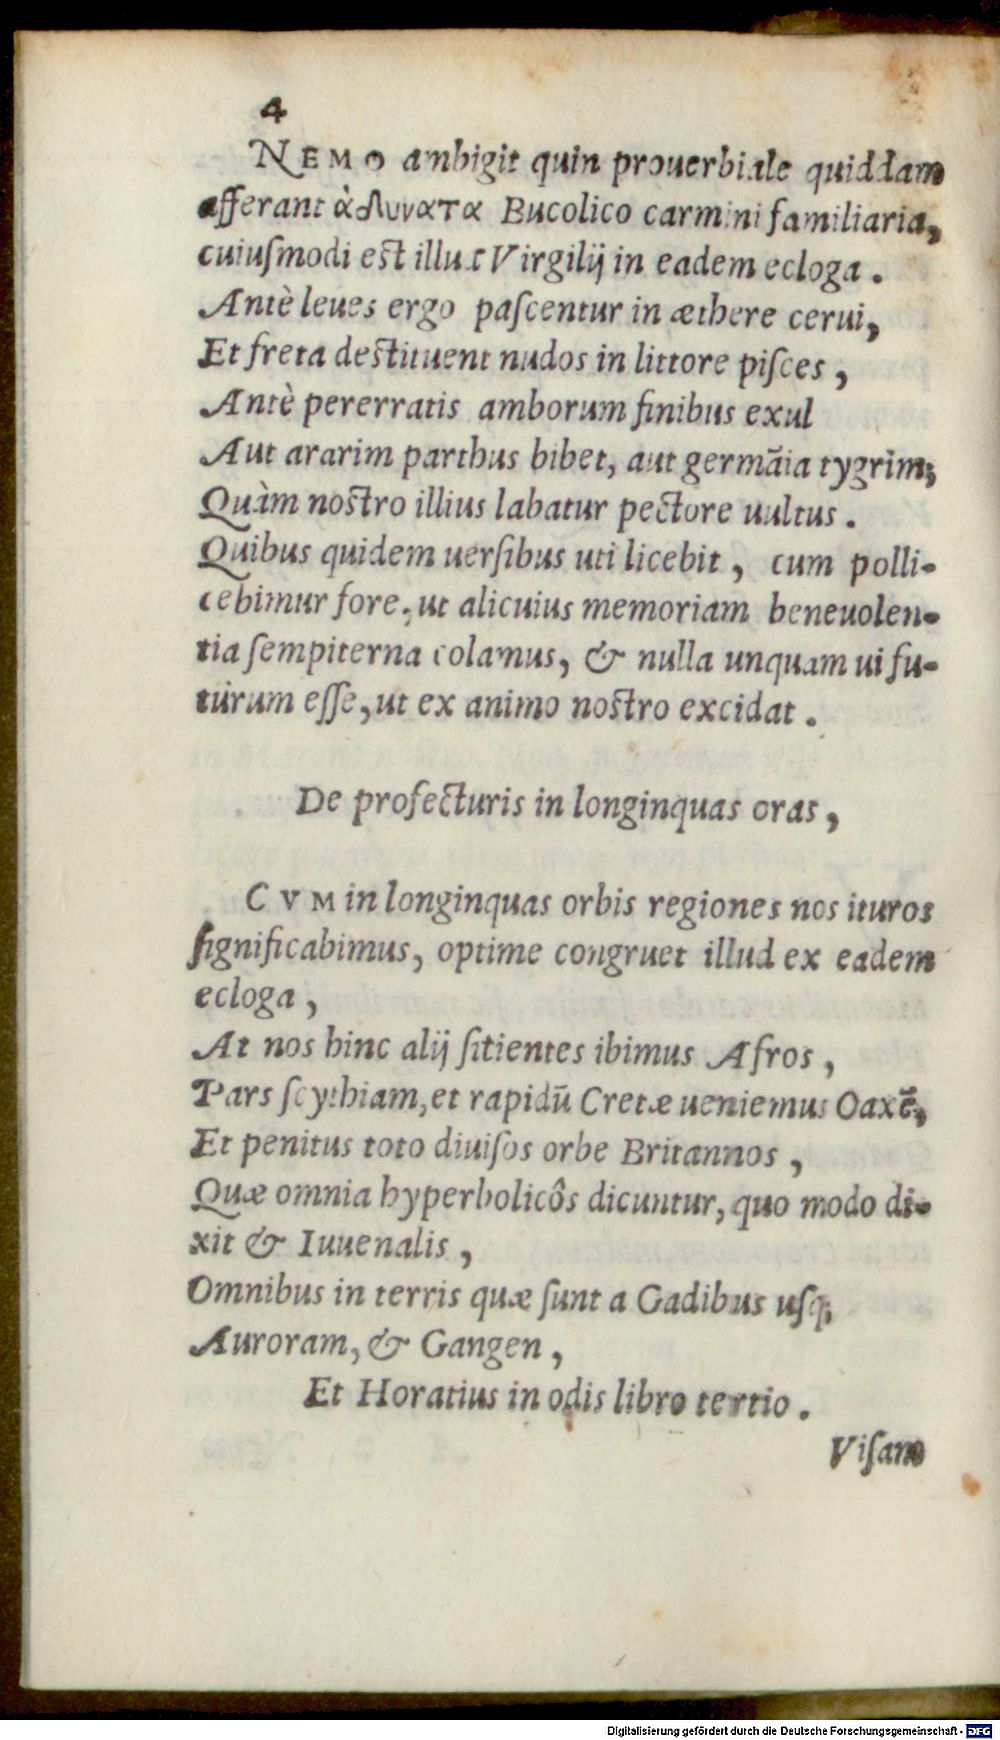 4
NEMO ambigit quin prouerbiale quiddam
afferant ἀδυνατα Bucolico carmini familiaria,
cuiuſmodi eſt illud Virgilij in eadem ecloga.
Antè leues ergo paſcentur in æthere cerui,
Et freta deſtituent nudos in littore piſces,
Antè pererratis amborum finibus exul
Aut ararim parthus bibet, aut germãia tygrim;
Quàm noſtro illius labatur pectore uultus.
Quibus quidem uerſibus uti licebit, cum polli-
cebimur fore, ut alicuius memoriam beneuolen-
tia ſempiterna colamus, & nulla unquam ui fu-
turum eſſe, ut ex animo noſtro excidat.
De profecturis in longinquas oras,
CVM in longinquas orbis regiones nos ituros
ſignificabimus, optime congruet illud ex eadem
ecloga,
At nos hinc alij ſitientes ibimus Afros,
Pars ſcythiam, et rapidũ Cretæ ueniemus Oaxẽ,
Et penitus toto diuiſos orbe Britannos,
Quæ omnia hyperbolicôs dicuntur, quo modo di-
xit & Iuuenalis,
Omnibus in terris quæ ſunt a Gadibus uſq;
Auroram, & Gangen,
Et Horatius in odis libro tertio.
Viſam
Digitalisierung gefördert durch die Deutsche Forschungsgemeinschaft - DFG